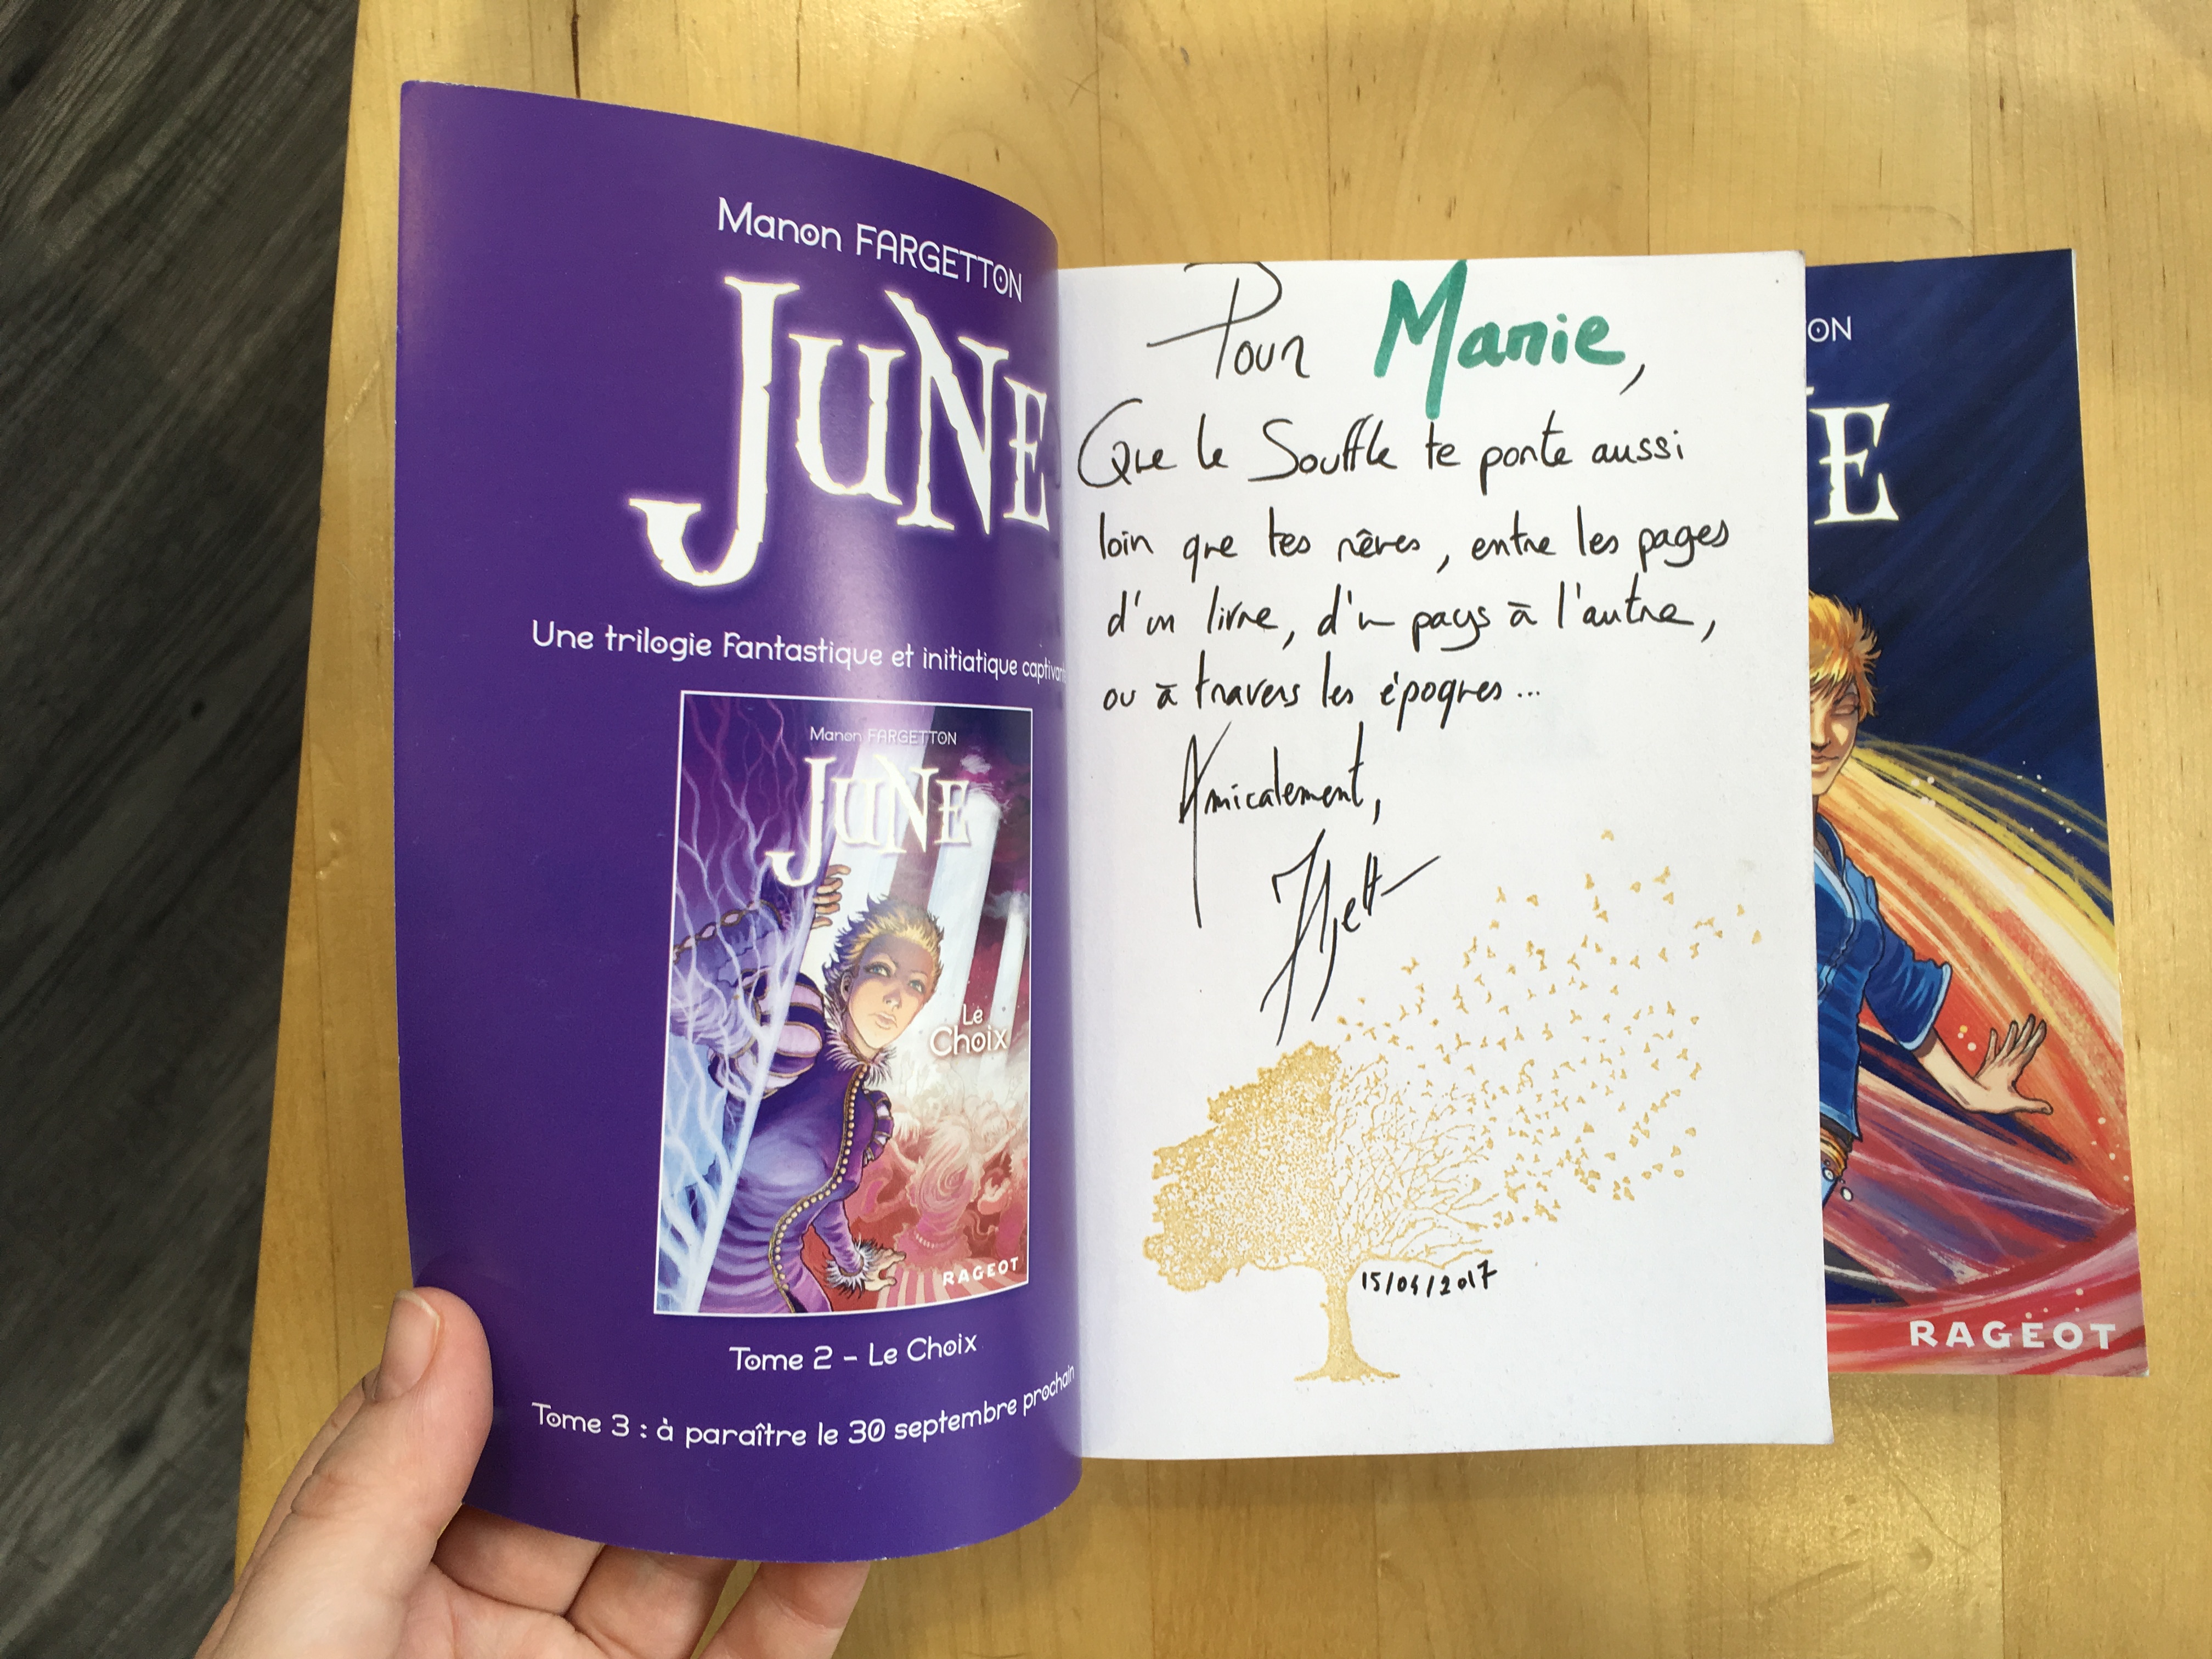 Manon FARGETTON
JUNE
Une trilogie Fantastique et initiatique
Manon FARGETTON
JUNE
Le
Choix
RAGEOT
Tome 2 – Le Choix
Tome 3 : à paraître le 30 septembre prochain
Pour Marie,
Que le Souffle te porte aussi
loin que tes rêves, entre les pages
d'un livre, d'un pays à l'autre,
ou à travers les époques...
Amicalement,
15/04/2017
ON
E
RAGEOT